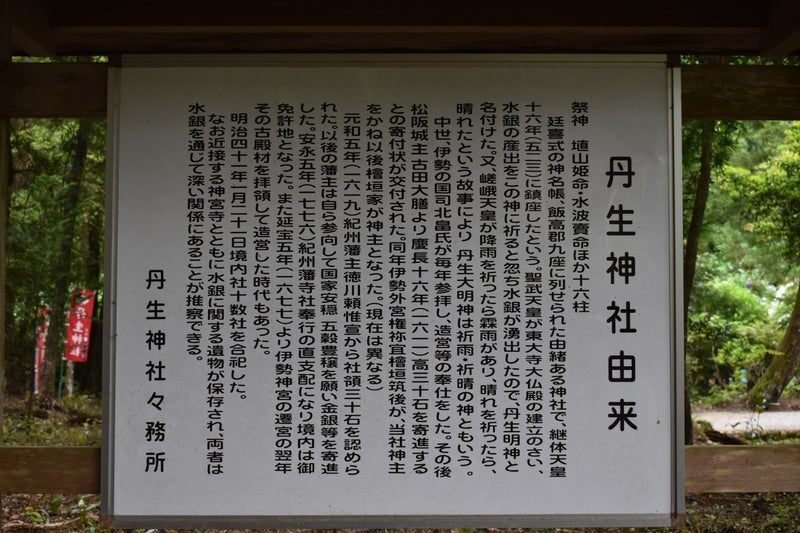 丹生神社由来
祭神　埴山姫命・水波賣命ほか十六柱
延喜式の神名帳、飯高郡九座に列せられた由緒ある神社で、継体天皇
十六年(五二三)に鎮座したという。聖武天皇が東大寺大仏殿の建立のさい、
水銀の産出をこの神に祈ると忽ち水銀が湧出したので、丹生明神と
名付けた。又、嵯峨天皇が降雨を祈ったら霖雨があり、晴れを祈ったら、
晴れたという故事により 丹生大明神は祈雨・祈晴の神ともいう。
中世、伊勢の国司北畠氏が毎年参拝し、造営等の奉仕をした。その後
松阪城主古田大膳より慶長十六年(一六一一)高三十石を寄進する
との寄付状が交付された。同年伊勢外宮権祢宜檜垣筑後が、当社神主
をかね以後檜垣家が神主となった。(現在は異なる)
元和五年(一六一九)紀州藩主徳川頼惟宣から社領三十石を認めら
れた。以後の藩主は自ら参向して国家安穏 五穀豊穣を願い金銀等を寄進
した。安永五年(一七七六)紀州藩寺社奉行の直支配になり境内は御
免許地となった。また延宝五年(一六七七)より伊勢神宮の遷宮の翌年
その古殿材を拝領して造営した時代もあった。
明治四十一年一月二十一日境内社十数社を合祀した。
なお近接する神宮寺とともに水銀に関する遺物が保存され、両者は
水銀を通じて深い関係にあることが推察できる。
丹生神社々務所
丹生神社